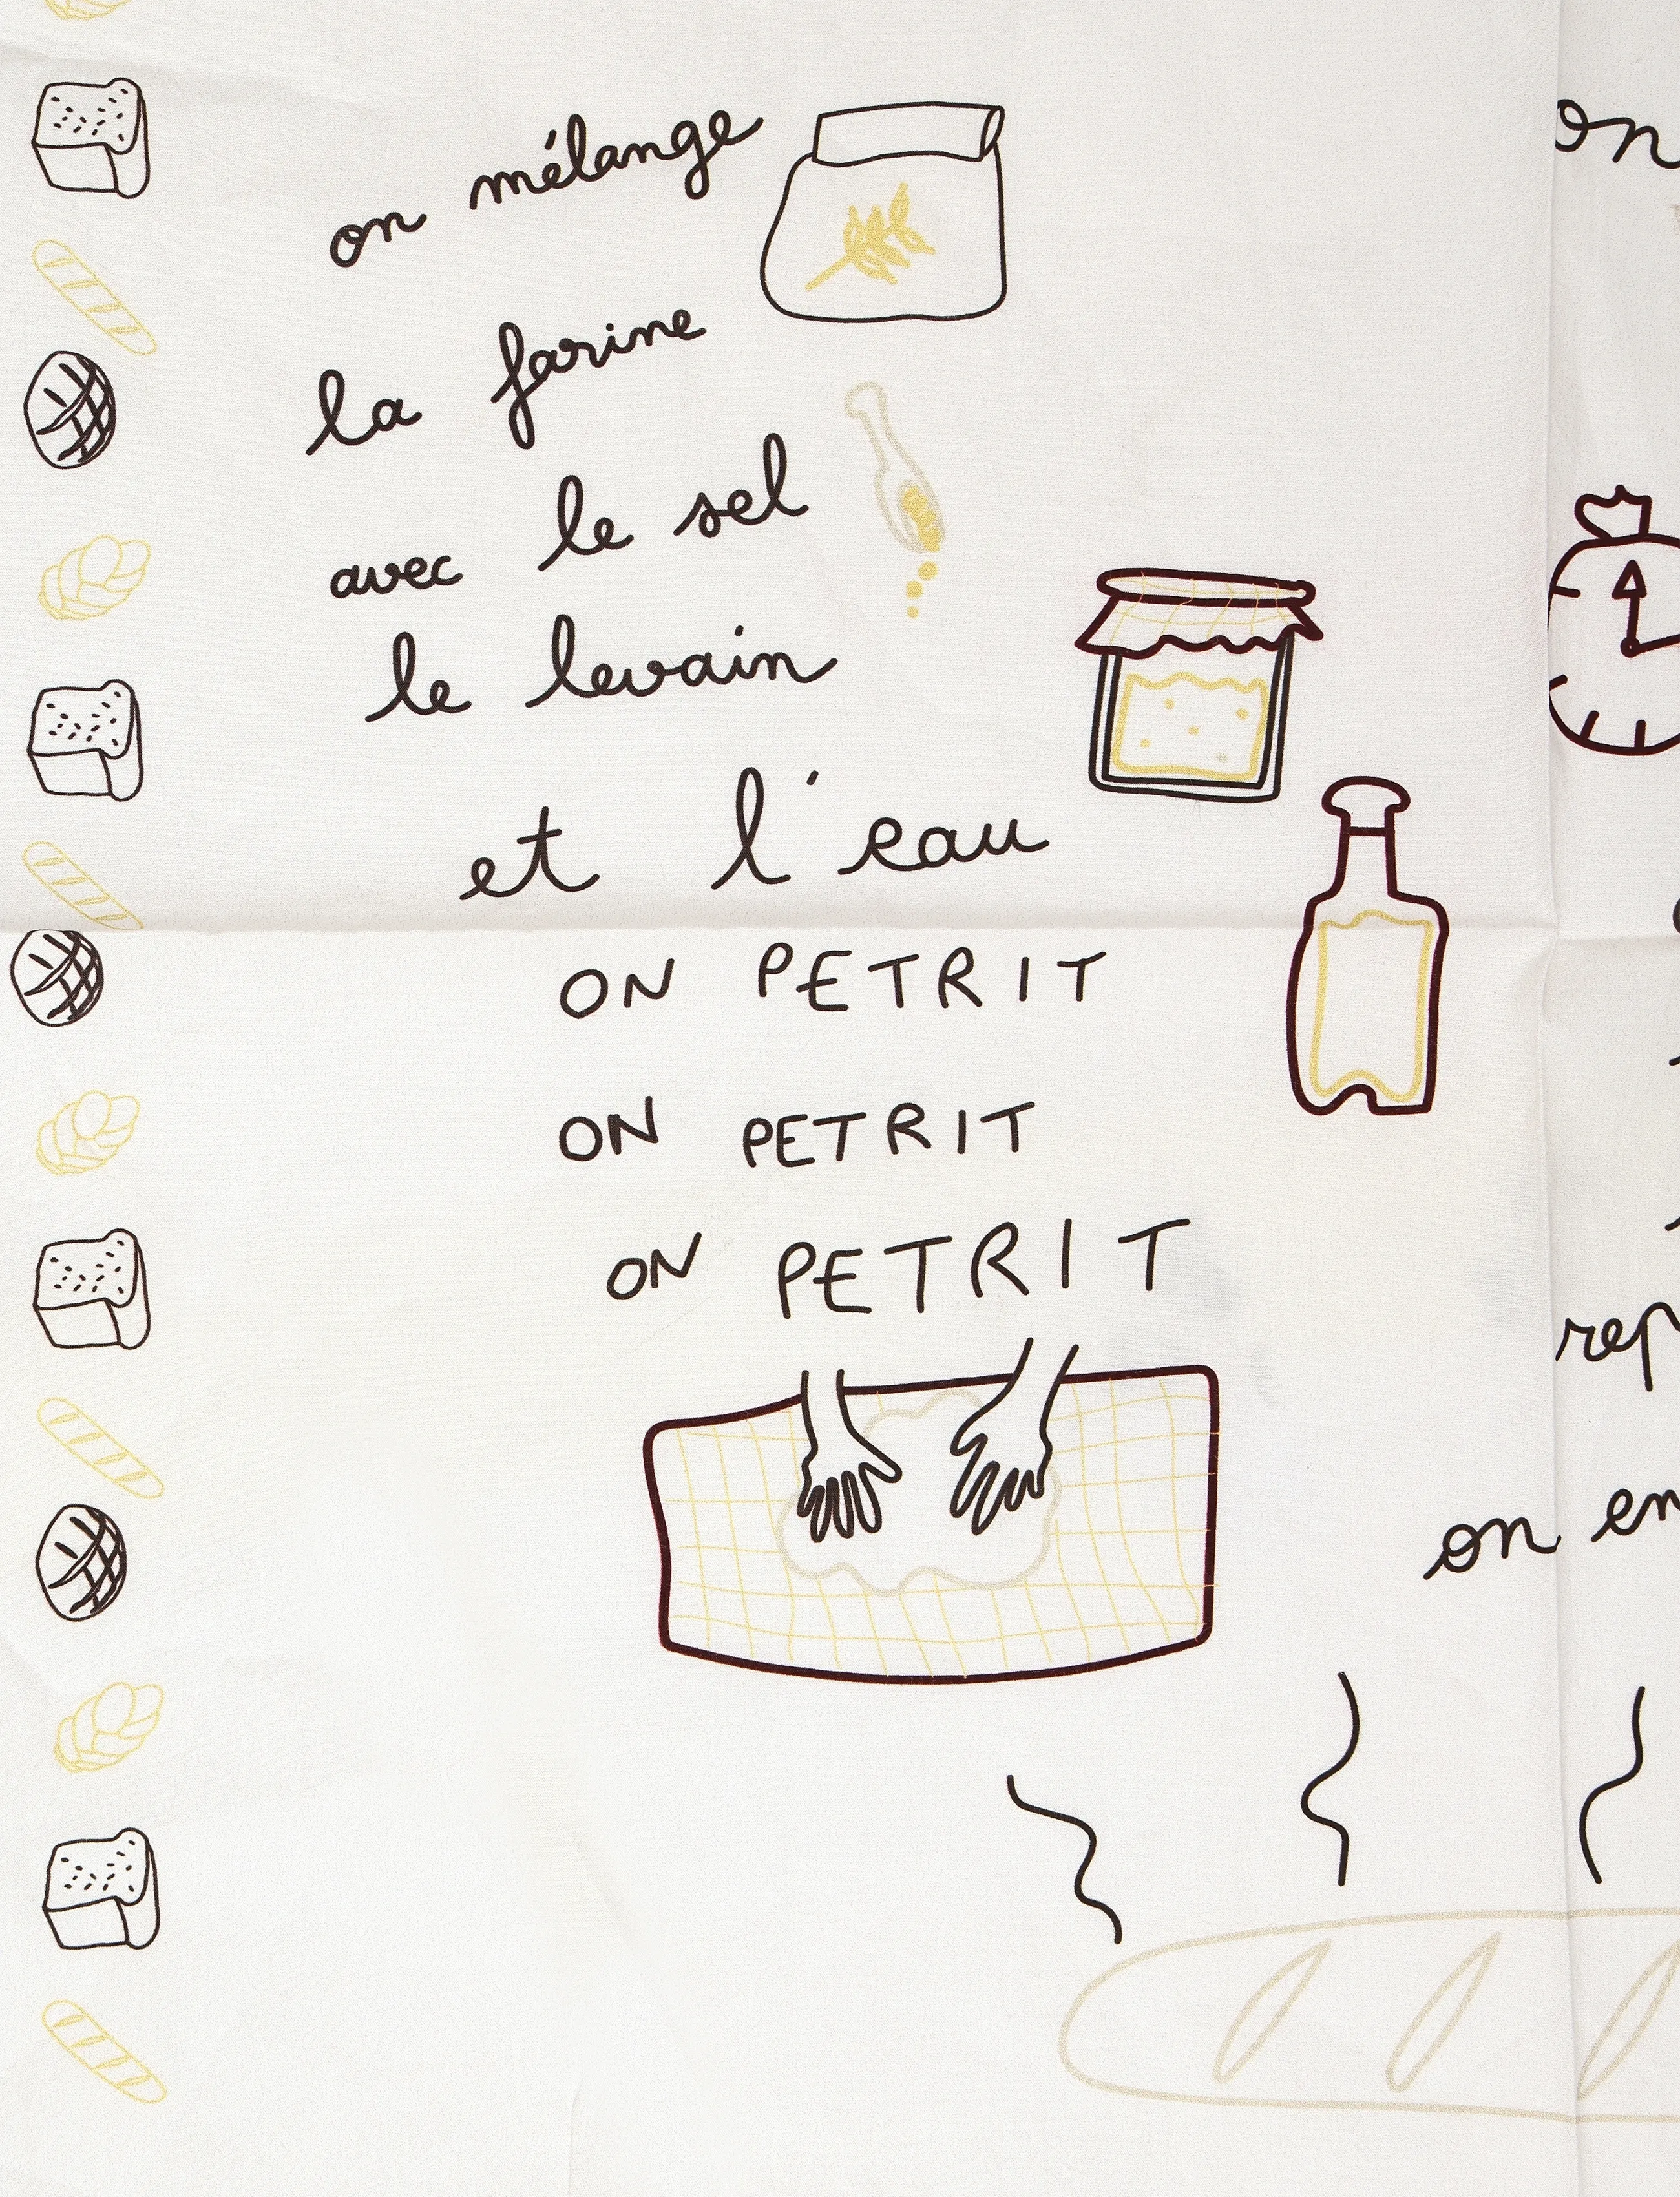 on mélange
la farine
avec le sel
le levain
et l'eau
ON PETRIT
ON PETRIT
ON PETRIT
on
on